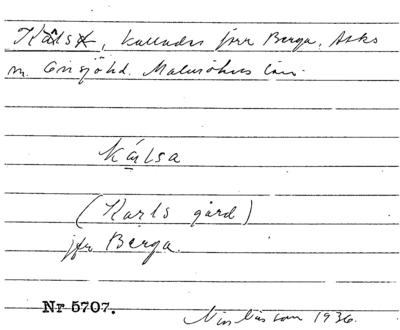 Kåls, kallades förr Berga. Asks
m. Onsjö hd. Malmöhus län.
Kålsa
(Karls gård)
jfr Berga.
Nr 5707.
1936.